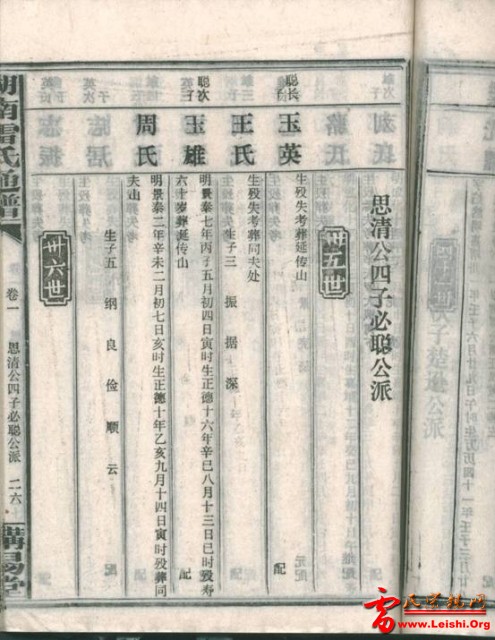 思清公四子必聪公派
卅五世
聪长子
玉英
生殁失考葬延传山
配
王氏
生殁失考葬同夫处
生子三 振 据 深
聪次子
玉雄
明景泰七年丙子五月初四日寅时生正德十六年辛巳八月十三日巳时殁寿
六十岁葬延传山
配
周氏
明景泰二年辛未二月初七日亥时生正德十年乙亥九月十四日寅时殁葬同
夫山
生子五 纲 良 俭 顺 云
卅六世
湖南雷氏通谱
卷一
思清公四子必聪公派
二六
雷氏宗亲网
www.Leishi.Org